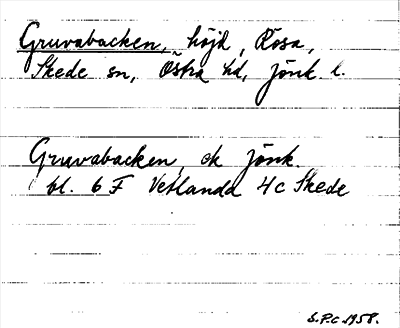 Gruvabacken, höjd, Rosa,
Skede sn, Östra hd, Jönk. l.
Gruvabacken, ek Jönk.
bl. 6 F Vetlanda 4c Skede
S.P.C. 1958.